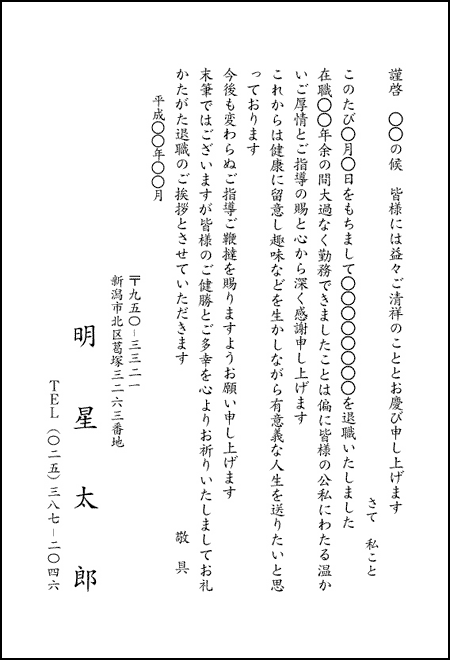 謹啓　〇〇の候　皆様には益々ご清祥のこととお慶び申し上げます
さて　私こと
このたび〇月〇日をもちまして〇〇〇〇〇〇〇を退職いたしました
在職〇〇年余の間大過なく勤務できましたことは偏に皆様の公私にわたる温か
いご厚情とご指導の賜と心から深く感謝申し上げます
これからは健康に留意し趣味などを生かしながら有意義な人生を送りたいと思
っております
今後も変わらぬご指導ご鞭撻を賜りますようお願い申し上げます
末筆ではございますが皆様のご健勝とご多幸を心よりお祈りいたしましてお礼
かたがた退職のご挨拶とさせていただきます
敬　具
平成〇〇年〇〇月
〒九五〇－三三二一
新潟市北区葛塚三二六三番地
明　星　太　郎
ＴＥＬ（〇二五）三八七－二〇四六